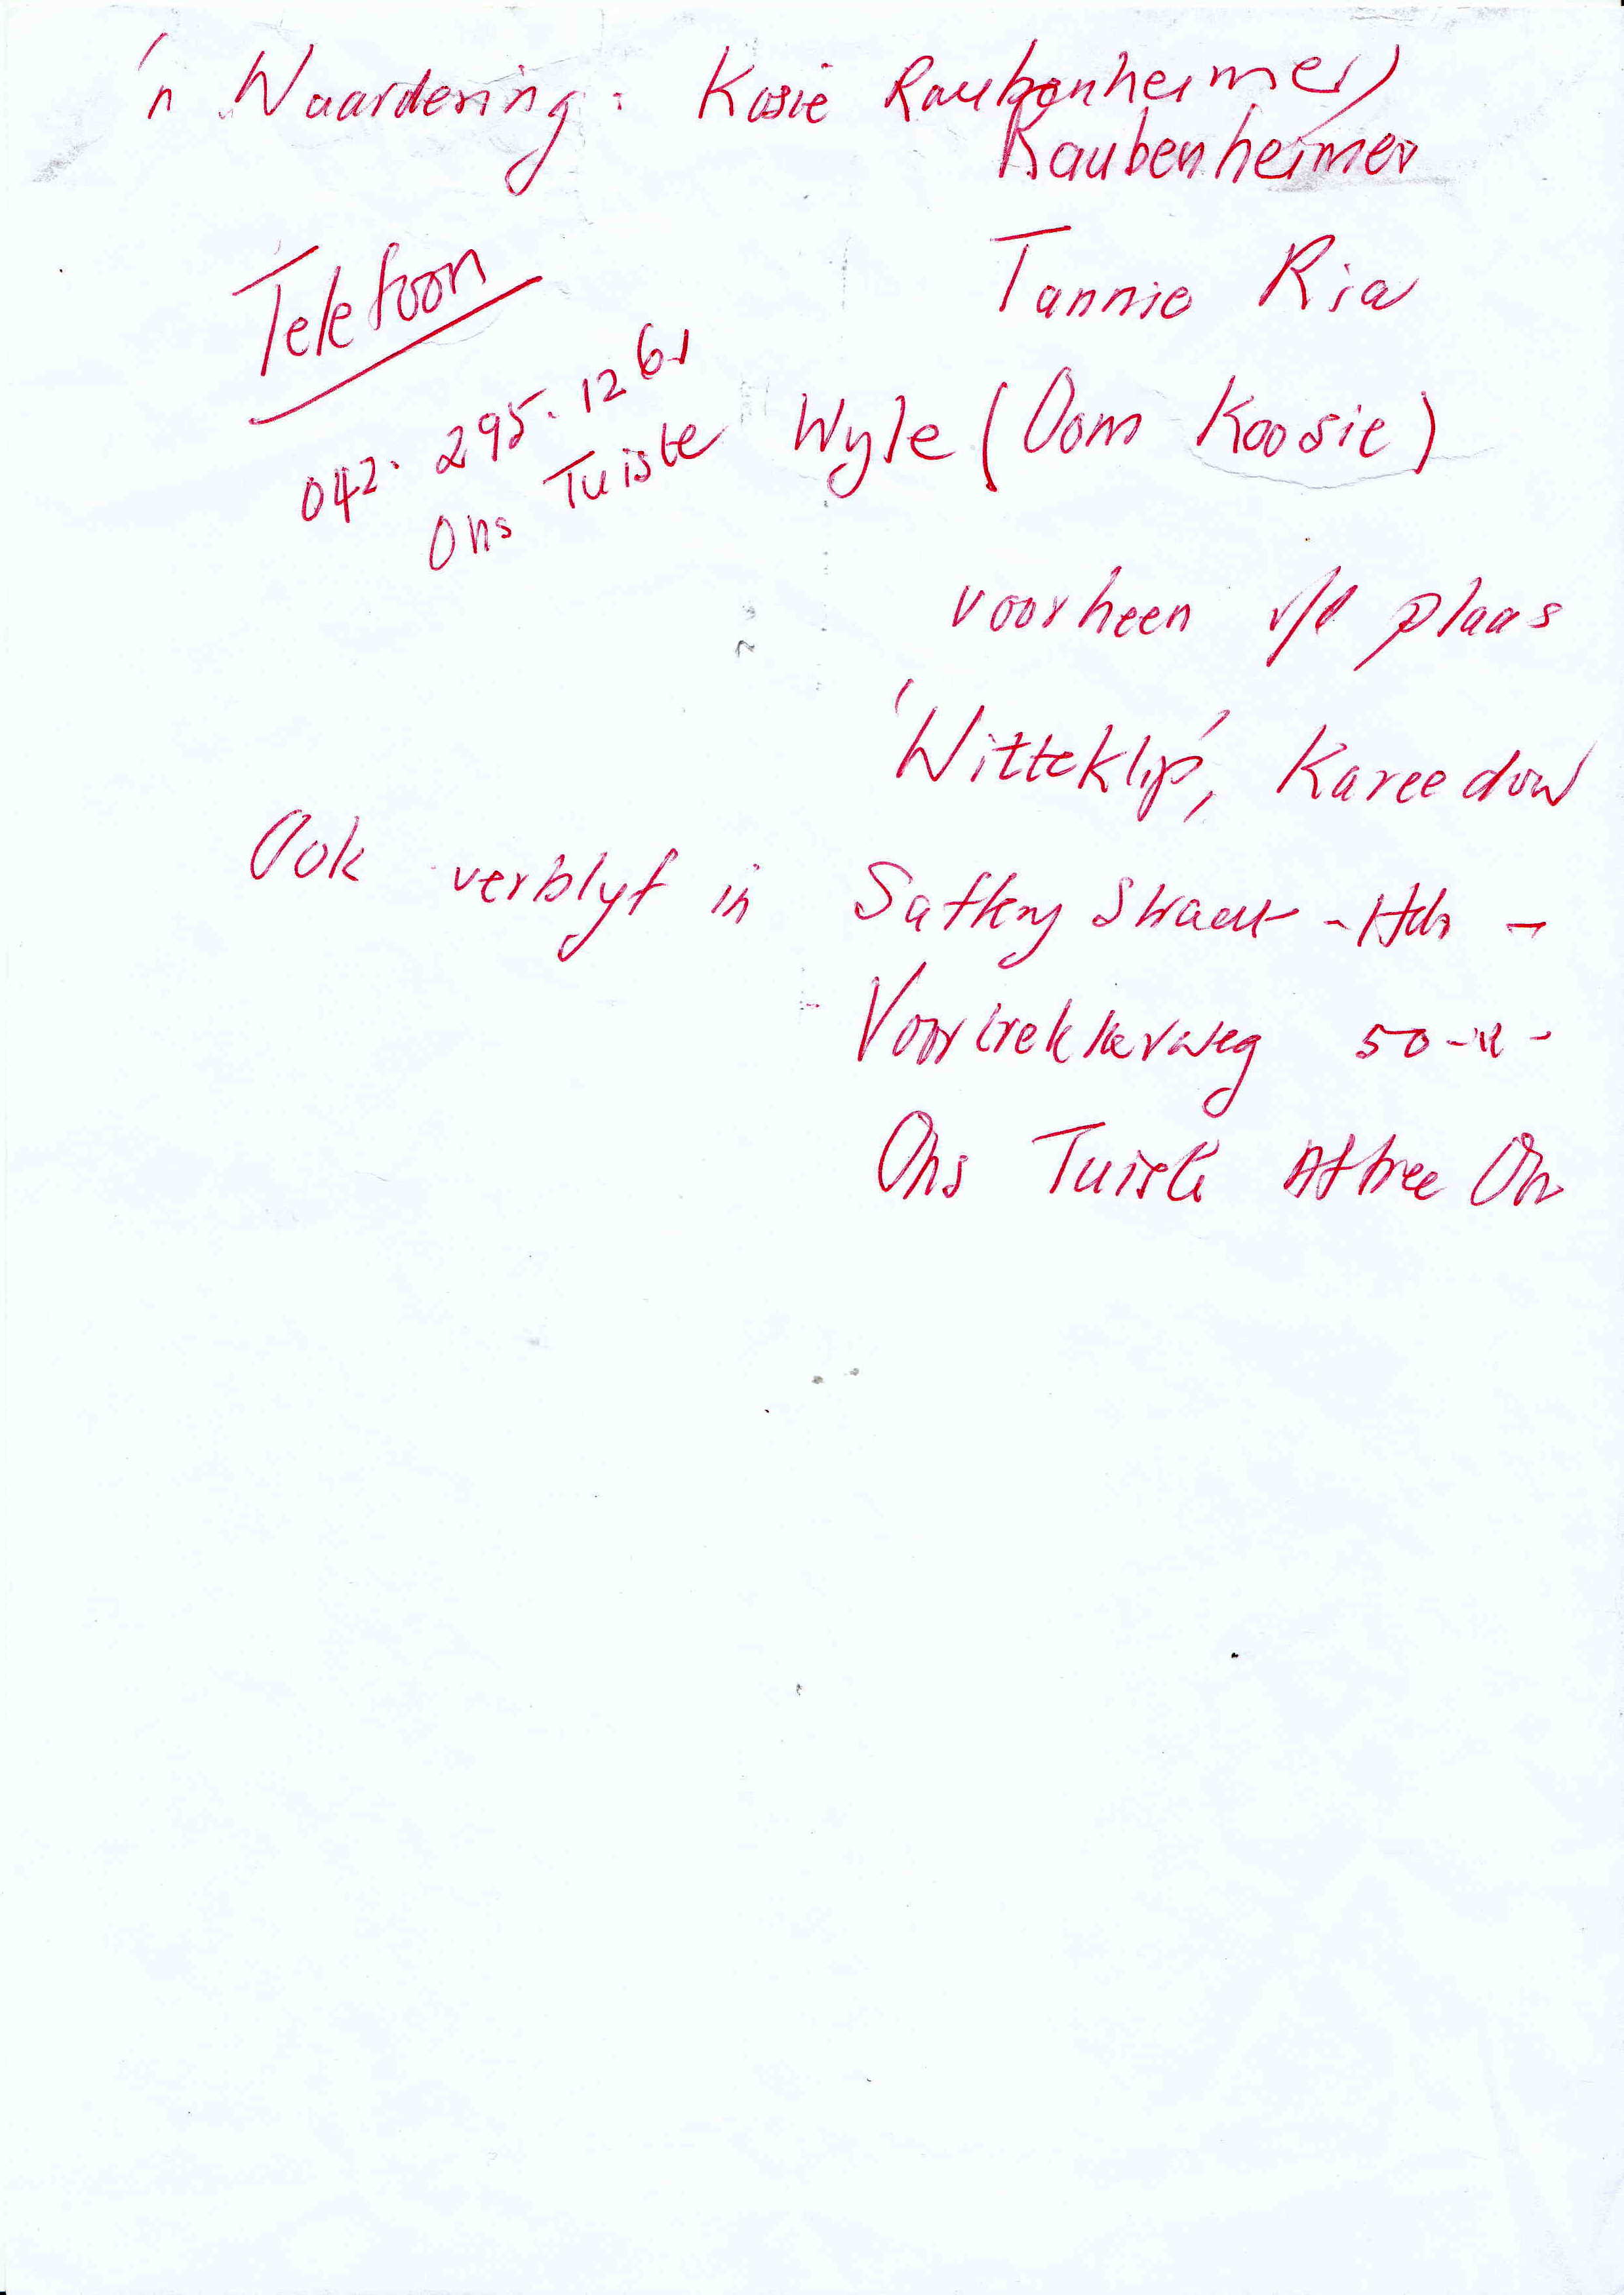 'n Waardering: Kosie Raubenheimer
Raubenheimer
Tannie Ria
Telefoon
042. 295. 1261
Ons Tuiste
Wyle (Oom Koosie)
voorheen v/d plaas
'Witteklip', Kareedouw
Ook verblyf in Saffery Straat - Hdp -
Voortrekkerweg 50 - " -
Ons Tuiste Aftree